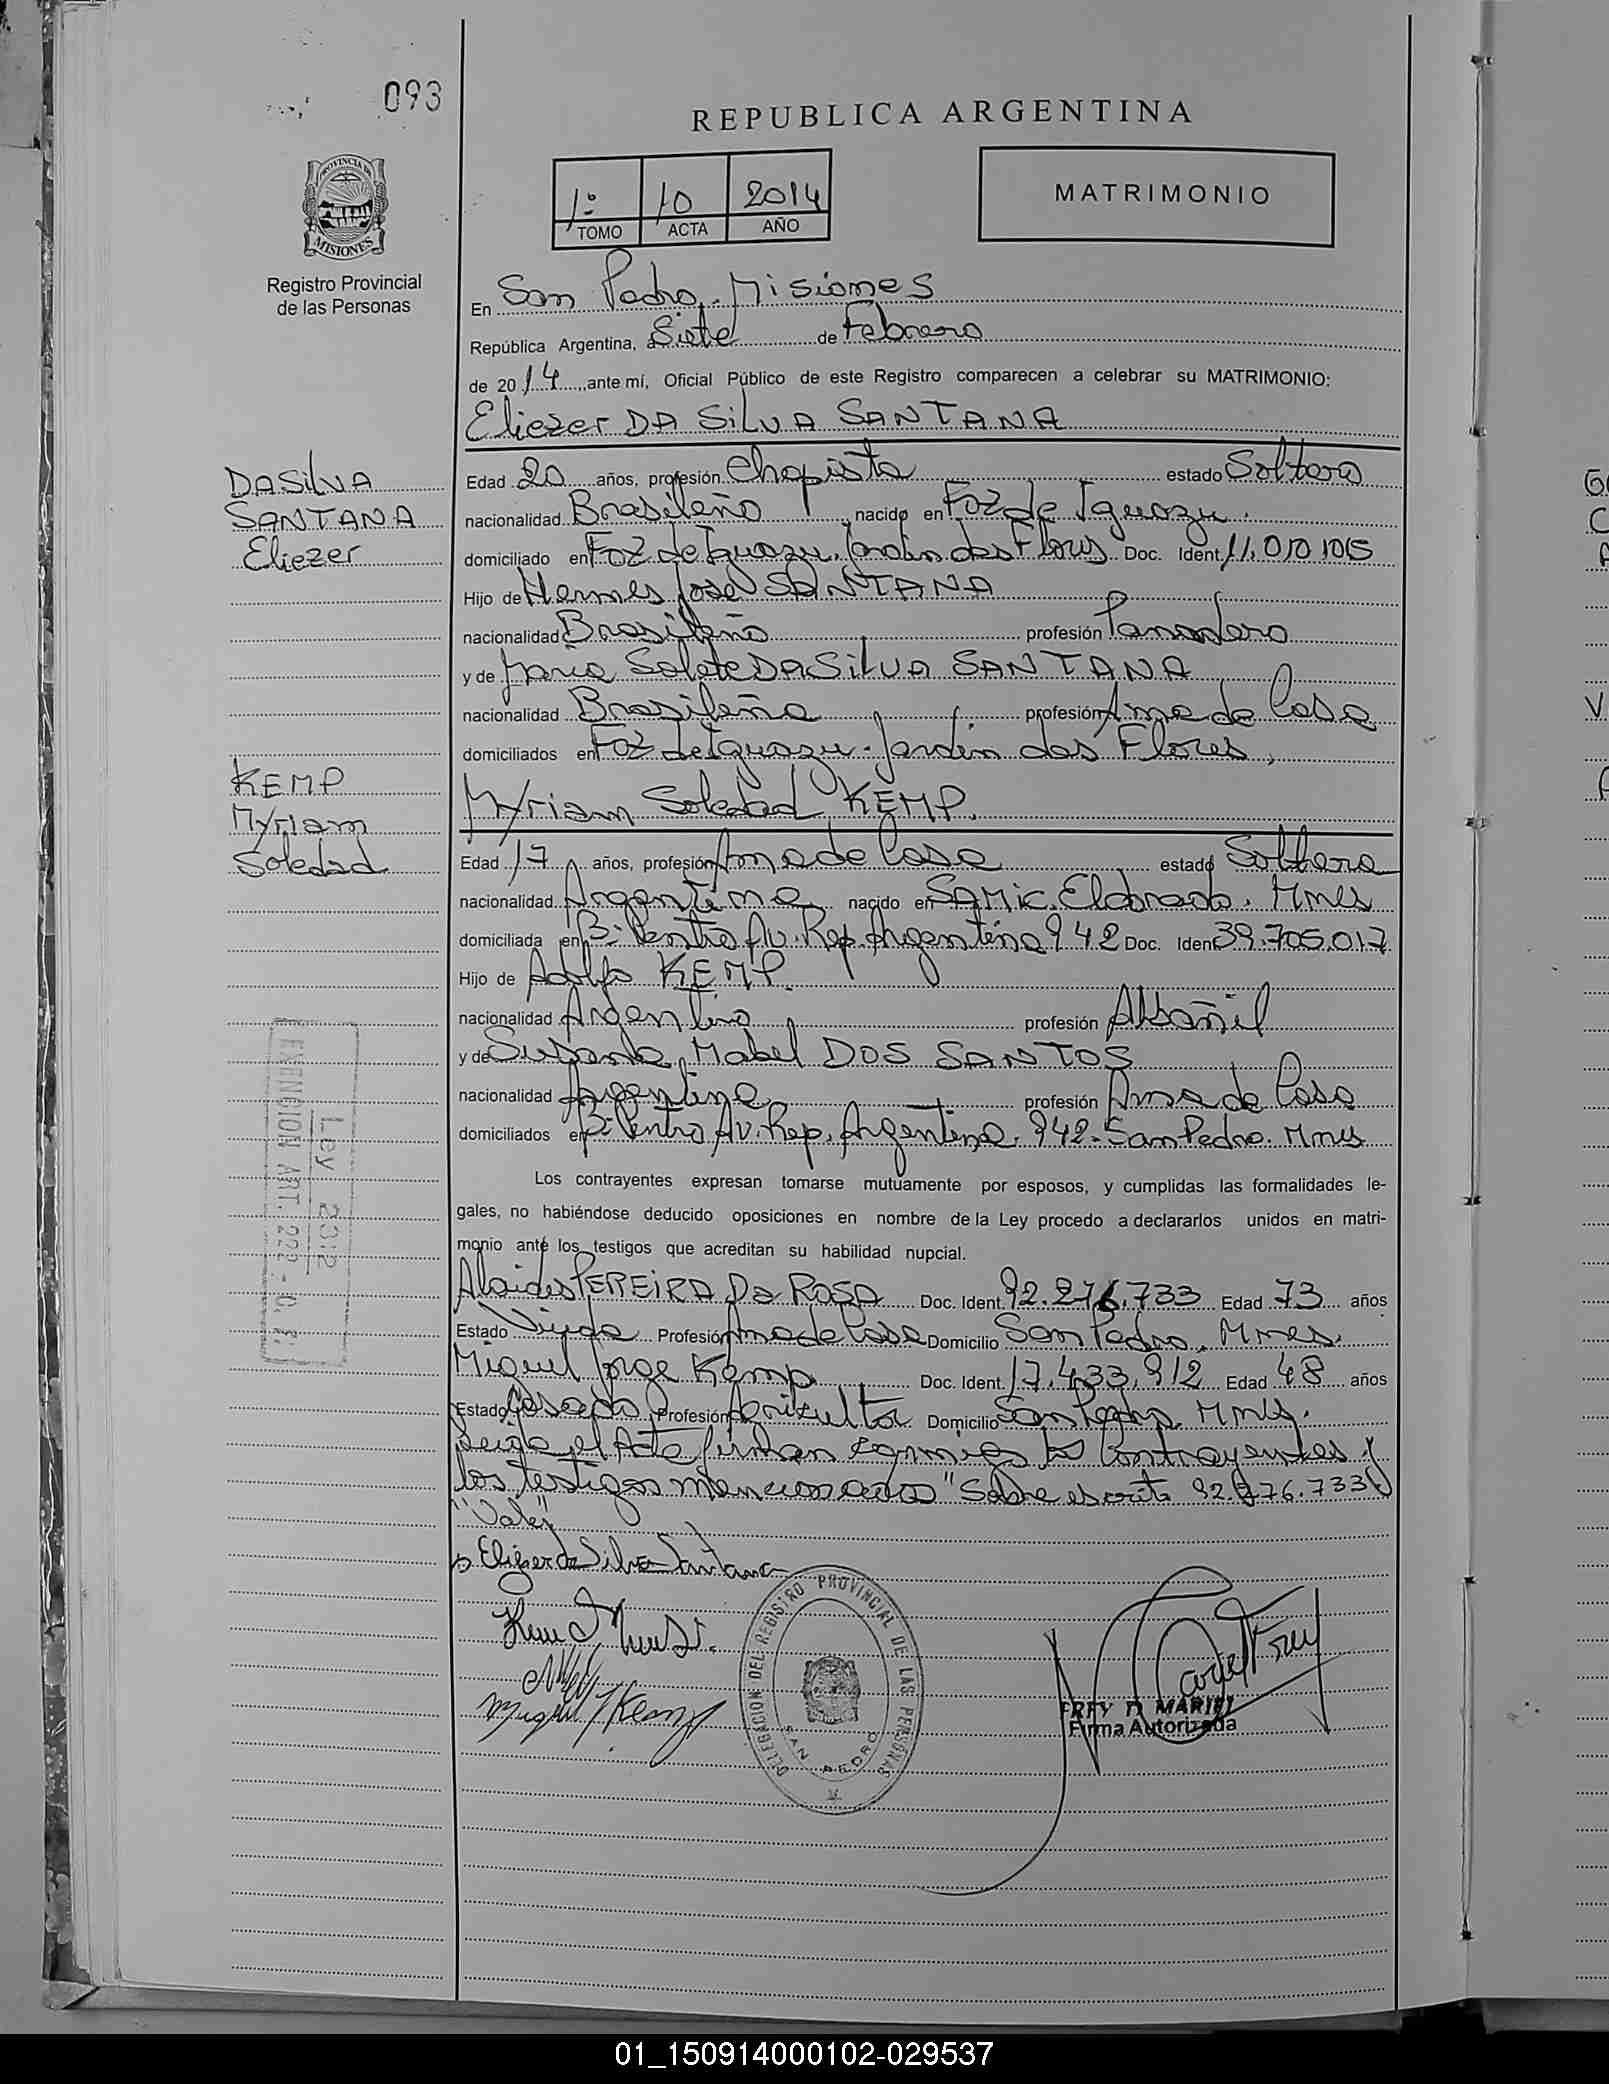 093
REPUBLICA ARGENTINA
PROVINCIA DE
MISIONES
Registro Provincial
de las Personas
1º 10 2014
TOMO ACTA AÑO
MATRIMONIO
En San Pedro. Misiones
República Argentina, a Siete de Febrero
de 2014, ante mí, Oficial Público de este Registro comparecen a celebrar su MATRIMONIO:
Eliezer DA SILVA SANTANA
DA SILVA
SANTANA
Eliezer
Edad 20 años, profesión Chapista estado Soltero
nacionalidad Brasileño, nacido en Foz de Iguazu.
domiciliado en Foz de Iguazu. Jardin das Flores Doc. Ident. 11.010.1015
Hijo de Hermes José SANTANA
nacionalidad Brasileño profesión Panadero
y de Maria Solete DA SILVA SANTANA
nacionalidad Brasileña profesión Ama de Casa
domiciliados en Foz de Iguazu. Jardin das Flores,
KEMP
Myriam
Soledad
Myriam Soledad KEMP.
Edad 17 años, profesión Ama de Casa estado Soltera
nacionalidad Argentina nacido en SAMIC. Eldorado. Mnes
domiciliada en Bº Centro Av. Rep. Argentina 942 Doc. Ident 39.705.017
Hijo de Adolfo KEMP.
nacionalidad Argentino profesión Albañil
y de Susana Mabel DOS SANTOS
nacionalidad Argentina profesión Ama de Casa
domiciliados en Bº Centro Av. Rep. Argentina. 942. San Pedro. Mnes
Ley 2312
EXENCION ART. 222
Los contrayentes expresan tomarse mutuamente por esposos, y cumplidas las formalidades le-
gales, no habiéndose deducido oposiciones en nombre de la Ley procedo a declararlos unidos en matri-
monio ante los testigos que acreditan su habilidad nupcial.
Alaides PEREIRA Da ROSA Doc. Ident. 92.276.733 Edad 73 años
Estado Viuda Profesión Ama de Casa Domicilio San Pedro. Mnes.
Miguel Jorge Kemp Doc. Ident. 17.433.912 Edad 48 años
Estado Casado Profesión Domicilio San Pedro. Mnes.
el Acta firman conmigo los Contrayentes y
los testigos mencionados "Sobre escrito 92.276.733
"Vale"
Eliezer da Silva Santana
Miguel J Kemp
DELEGACION DEL REGISTRO PROVINCIAL DE LAS PERSONAS
SAN PEDRO
FREY D. MARIEL
Firma Autorizada
01_150914000102-029537